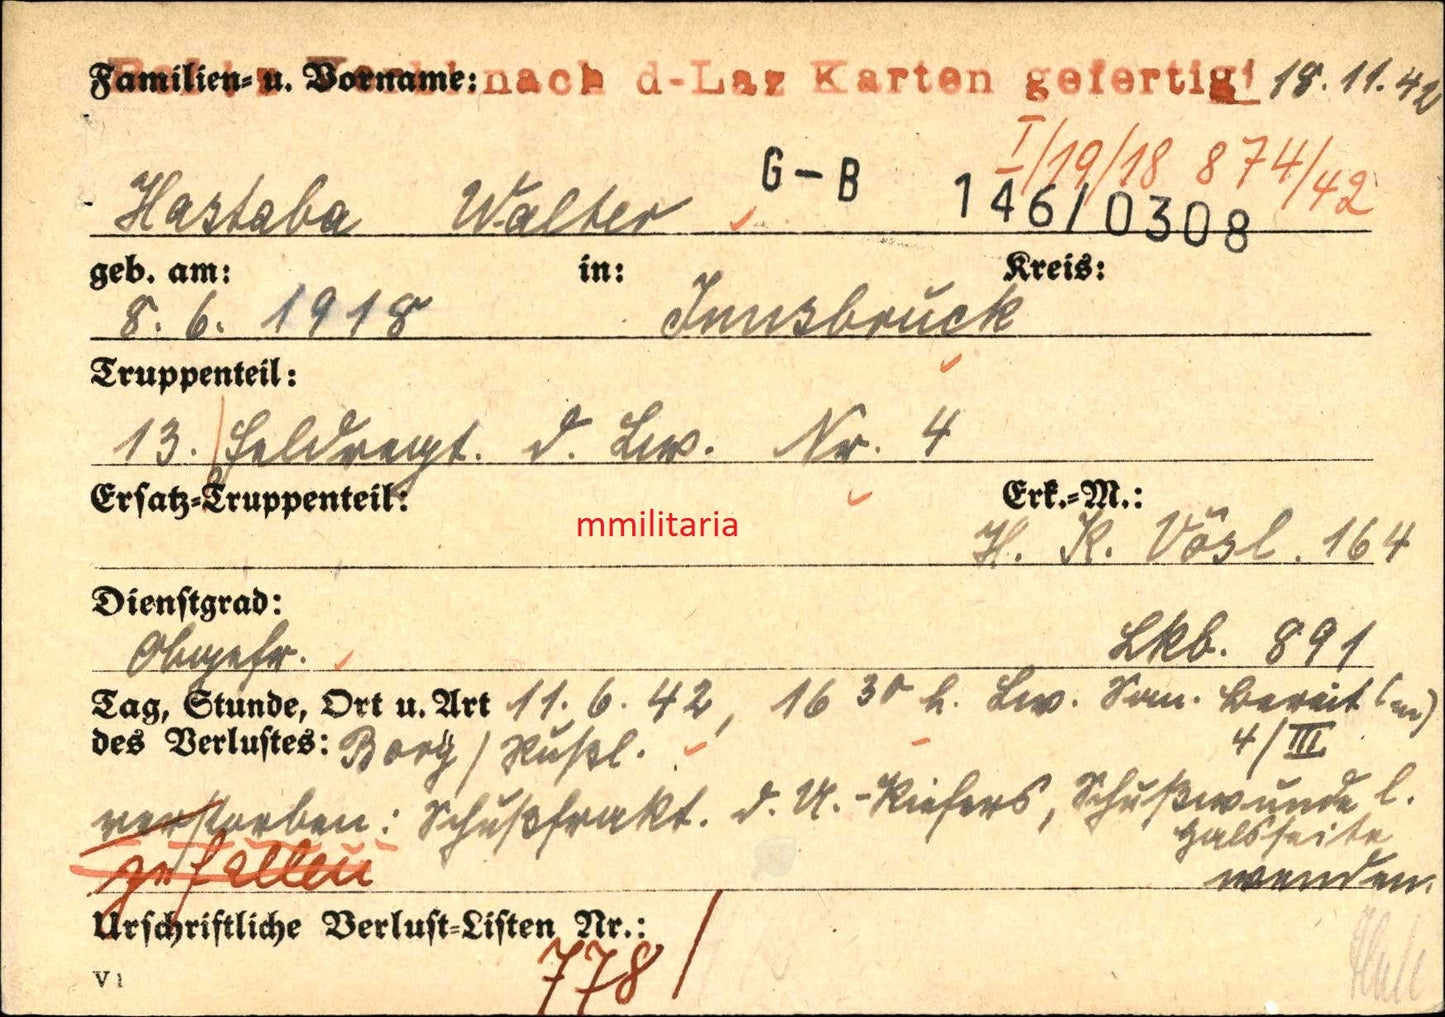 Familien- u. Vorname: nach d-Laz Karten gefertigt 18. 11. 42
I/19/18 874/42
Hastaba Walter G-B 146/0308
geb. am: in: Kreis:
8. 6. 1918 Innsbruck
Truppenteil:
13. Feldregt. d. Lw. Nr. 4
Ersatz-Truppenteil: Erk.-M.:
mmilitaria
H. K. Vösl. 164
Dienstgrad:
Obgefr. Lkb. 891
Tag, Stunde, Ort u. Art 11. 6. 42, 16 30 h. Lw. San. Bereit (m)
des Verlustes: Borg / Rußl. 4/III
verstorben: Schußfrakt. d. U.-Kiefers, Schußwunde l.
Halsseite
gefallen wenden.
Urschriftliche Verlust-Listen Nr.:
778/
V1